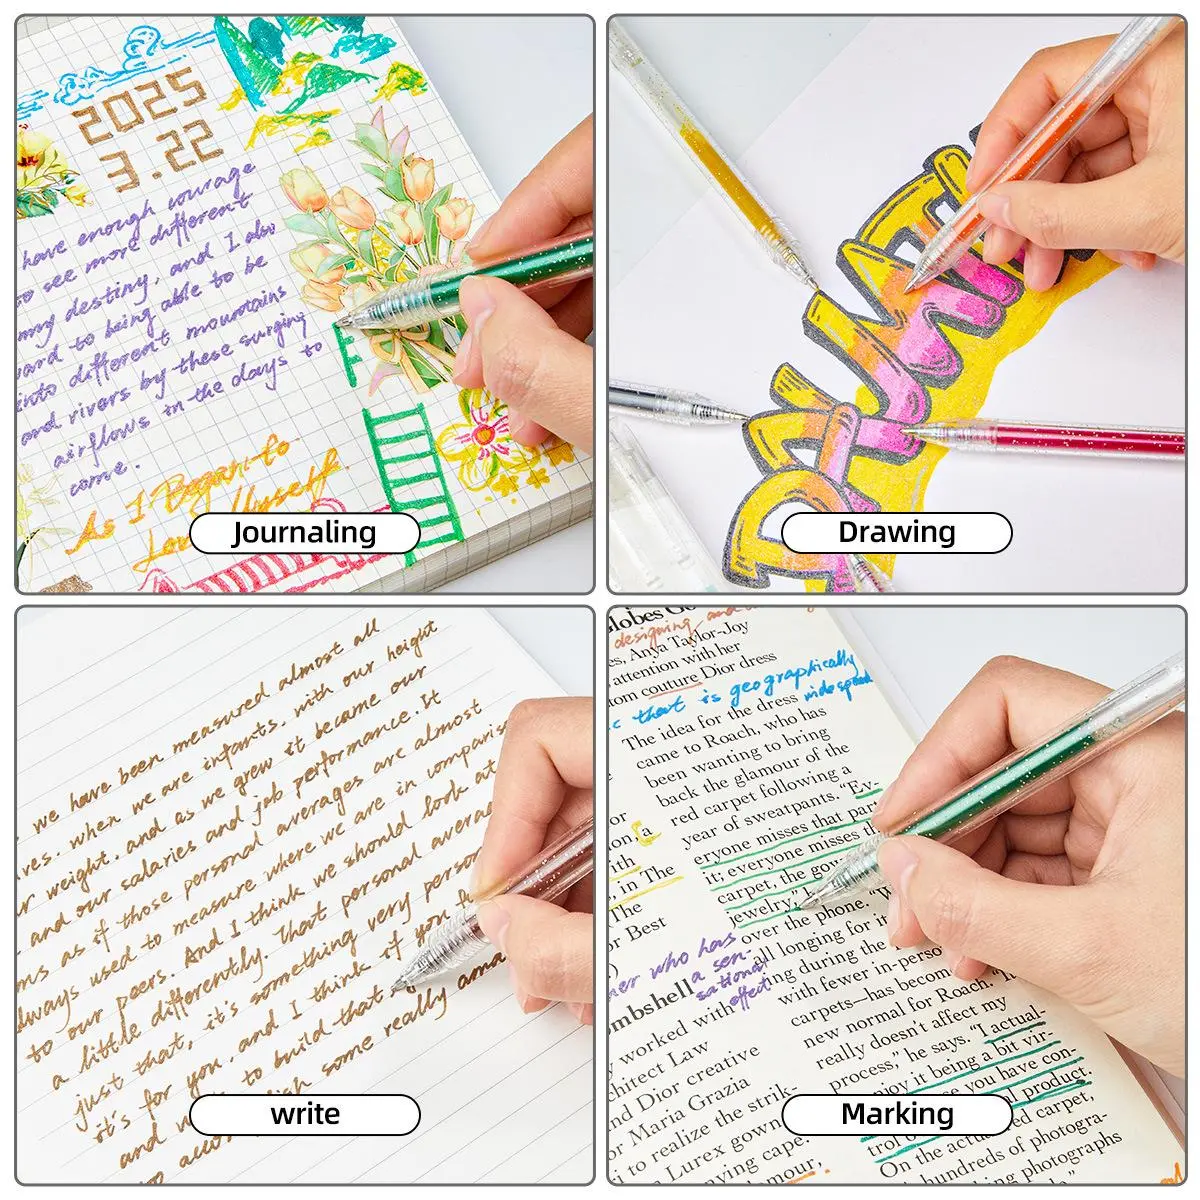 2025
3.22
have enough courage
to see more different
my destiny, and I also
ward to being able to be
into different mountains
and rivers by these surging
airflows in the days to
come.
As I Began to
Love Myself
Journaling
Drawing
we have been measured almost all
ves. when we are infants, with our height
r weight, and as we grew it became our
and our salaries and job performance. It
ms as if those personal averages are almost
lways used to measure where we are in comparis
to our peers. And I think we should look at
a little differently. That personal averag
just that, it's something very person
it's for you, and I think if you f
and w to build that
too acco lish some really ama
write
lobes Go
designing and
es, Anya Taylor-Joy
attention with her
om couture Dior dress
c that is geographically
widespread
The idea for the dress
came to Roach, who has
been wanting to bring
back the glamour of the
red carpet following a
year of sweatpants. “Ev-
eryone misses that par
it; everyone misses th
carpet, the gow
jewelry,”
over the phone. “W
ll longing for it
ing during the
with fewer in-perso
carpets—has becom
new normal for Roach. “I
really doesn't affect my
process,” he says. “I actual-
enjoy it being a bit vir-
se you have con-
trol o al product.
On the actual red carpet,
hundreds of photogra-
ing photographs
or
on, a
ith
, in The
(The
or Best
)
her who has
a sen-
sational
effect
ombshell
y worked with
chitect Law
nd Dior creative
or Maria Grazia
i to realize the strik-
Lurex gown
ying cape.
mour,
Marking